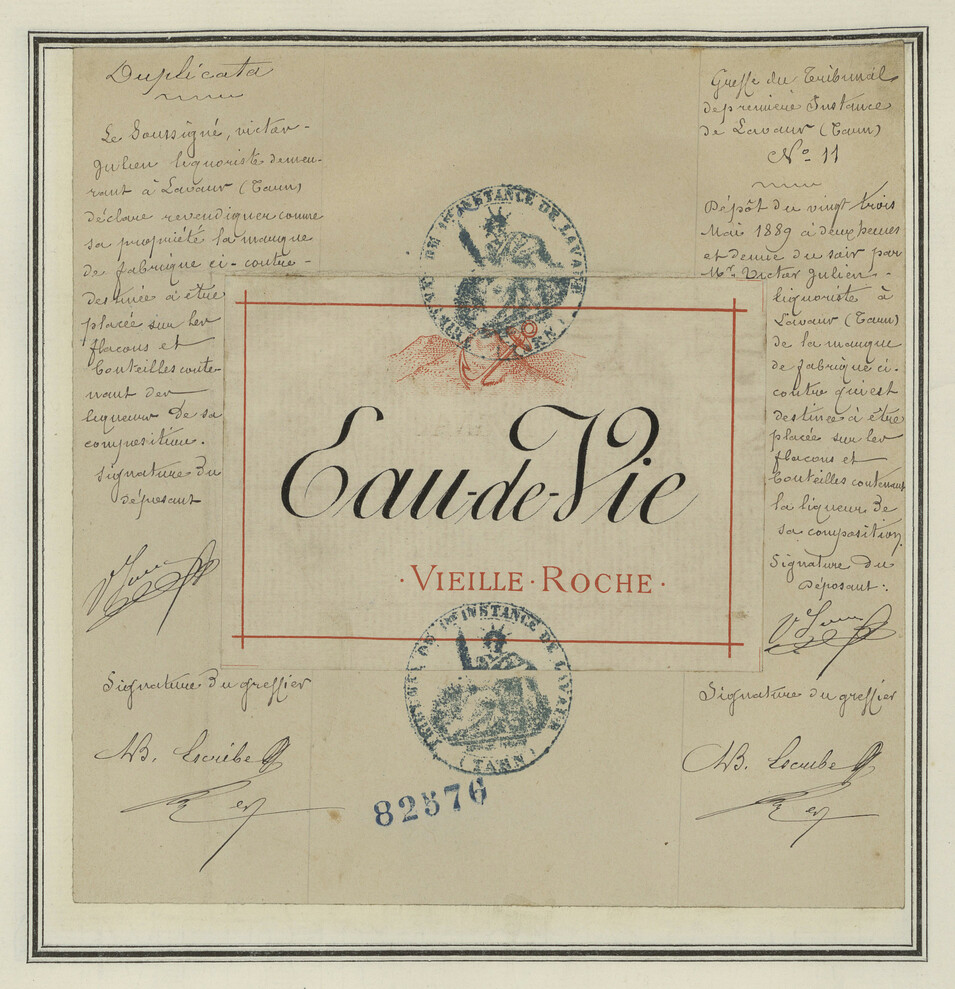 Duplicata
Le Soussigné, victor-
Julien liquoriste demeu-
rant à Lavaur (Tarn)
déclare revendiquer comme
sa propriété la marque
de fabrique ci-contre-
destinée à être
placée sur les
flacons et
bouteilles conte-
nant des
liqueurs de sa
composition.
Signature du
déposant
Signature du greffier
Greffe du Tribunal
de première Instance
de Lavaur (Tarn)
No. 11
Dépôt du vingt trois
Mai 1889 à deux heures
et demie du soir par
Mr. Victor Julien-
liquoriste à
Lavaur (Tarn)
de la marque
de fabrique ci-
contre qui est
destinée à être
placée sur les
flacons et
bouteilles contenant
la liqueur de
sa composition.
Signature du
Déposant:
Signature du greffier
TRIBUNAL DE 1RE INSTANCE DE LAVAUR
(TARN)
Eau-de-Vie
·VIEILLE·ROCHE·
TRIBUNAL DE 1RE INSTANCE DE LAVAUR
(TARN)
82576